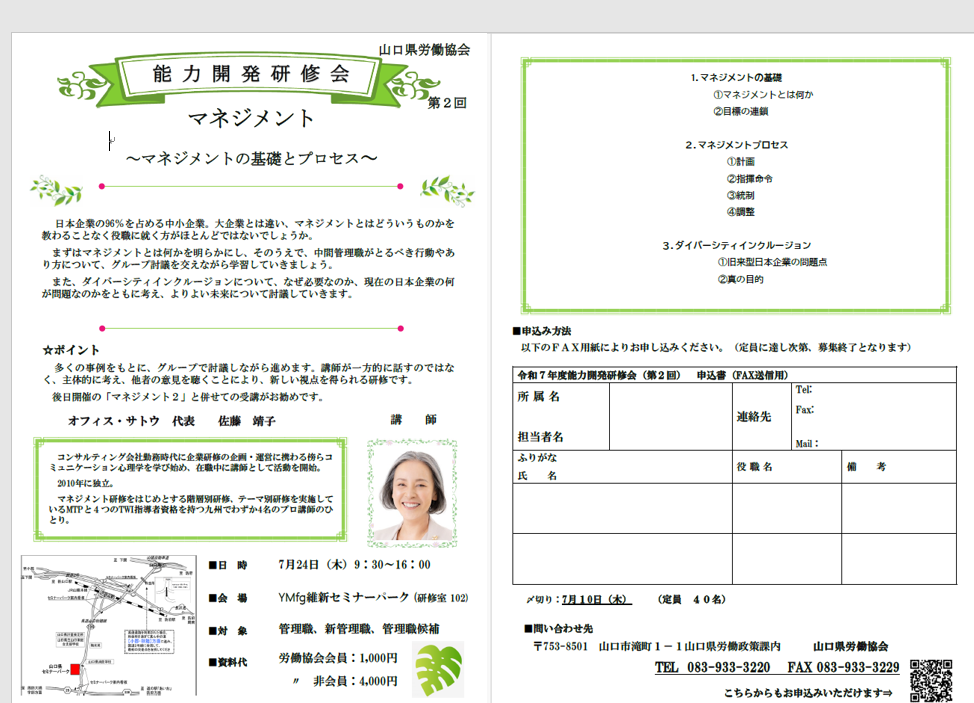 山口県労働協会
能力開発研修会
第２回
マネジメント
～マネジメントの基礎とプロセス～
日本企業の96％を占める中小企業。大企業とは違い、マネジメントとはどういうものかを
教わることなく役職に就く方がほとんどではないでしょうか。
まずはマネジメントとは何かを明らかにし、そのうえで、中間管理職がとるべき行動やあ
り方について、グループ討議を交えながら学習していきましょう。
また、ダイバーシティインクルージョンについて、なぜ必要なのか、現在の日本企業の何
が問題なのかをともに考え、よりよい未来について討議していきます。
☆ポイント
多くの事例をもとに、グループで討議しながら進めます。講師が一方的に話すのではな
く、主体的に考え、他者の意見を聴くことにより、新しい視点を得られる研修です。
後日開催の「マネジメント２」と併せての受講がお勧めです。
オフィス・サトウ　代表　　佐藤　靖子
講　師
コンサルティング会社勤務時代に企業研修の企画・運営に携わる傍らコ
ミュニケーション心理学を学び始め、在職中に講師として活動を開始。
2010年に独立。
マネジメント研修をはじめとする階層別研修、テーマ別研修を実施して
いるMTPと４つのTWI指導者資格を持つ九州でわずか4名のプロ講師のひ
とり。
山口県
セミナーパーク
■日　時　7月24日（木）9：30～16：00
■会　場　YMfg維新セミナーパーク (研修室 102)
■対　象　管理職、新管理職、管理職候補
■資料代　労働協会会員：1,000円
〃　非会員：4,000円
1.マネジメントの基礎
①マネジメントとは何か
②目標の連鎖
2.マネジメントプロセス
①計画
②指揮命令
③統制
④調整
3.ダイバーシティインクルージョン
①旧来型日本企業の問題点
②真の目的
■申込み方法
以下のＦＡＸ用紙によりお申し込みください。（定員に達し次第、募集終了となります）
令和７年度能力開発研修会（第２回）　申込書（FAX送信用）
所属名
担当者名
連絡先
Tel:
Fax:
Mail：
ふりがな
氏　　名
役職名
備　考
〆切り：7月１0日（木）　（定員　４０名）
■問い合わせ先
〒753-8501　山口市滝町１－１山口県労働政策課内　　山口県労働協会
TEL 083-933-3220　FAX 083-933-3229
こちらからもお申込みいただけます⇒